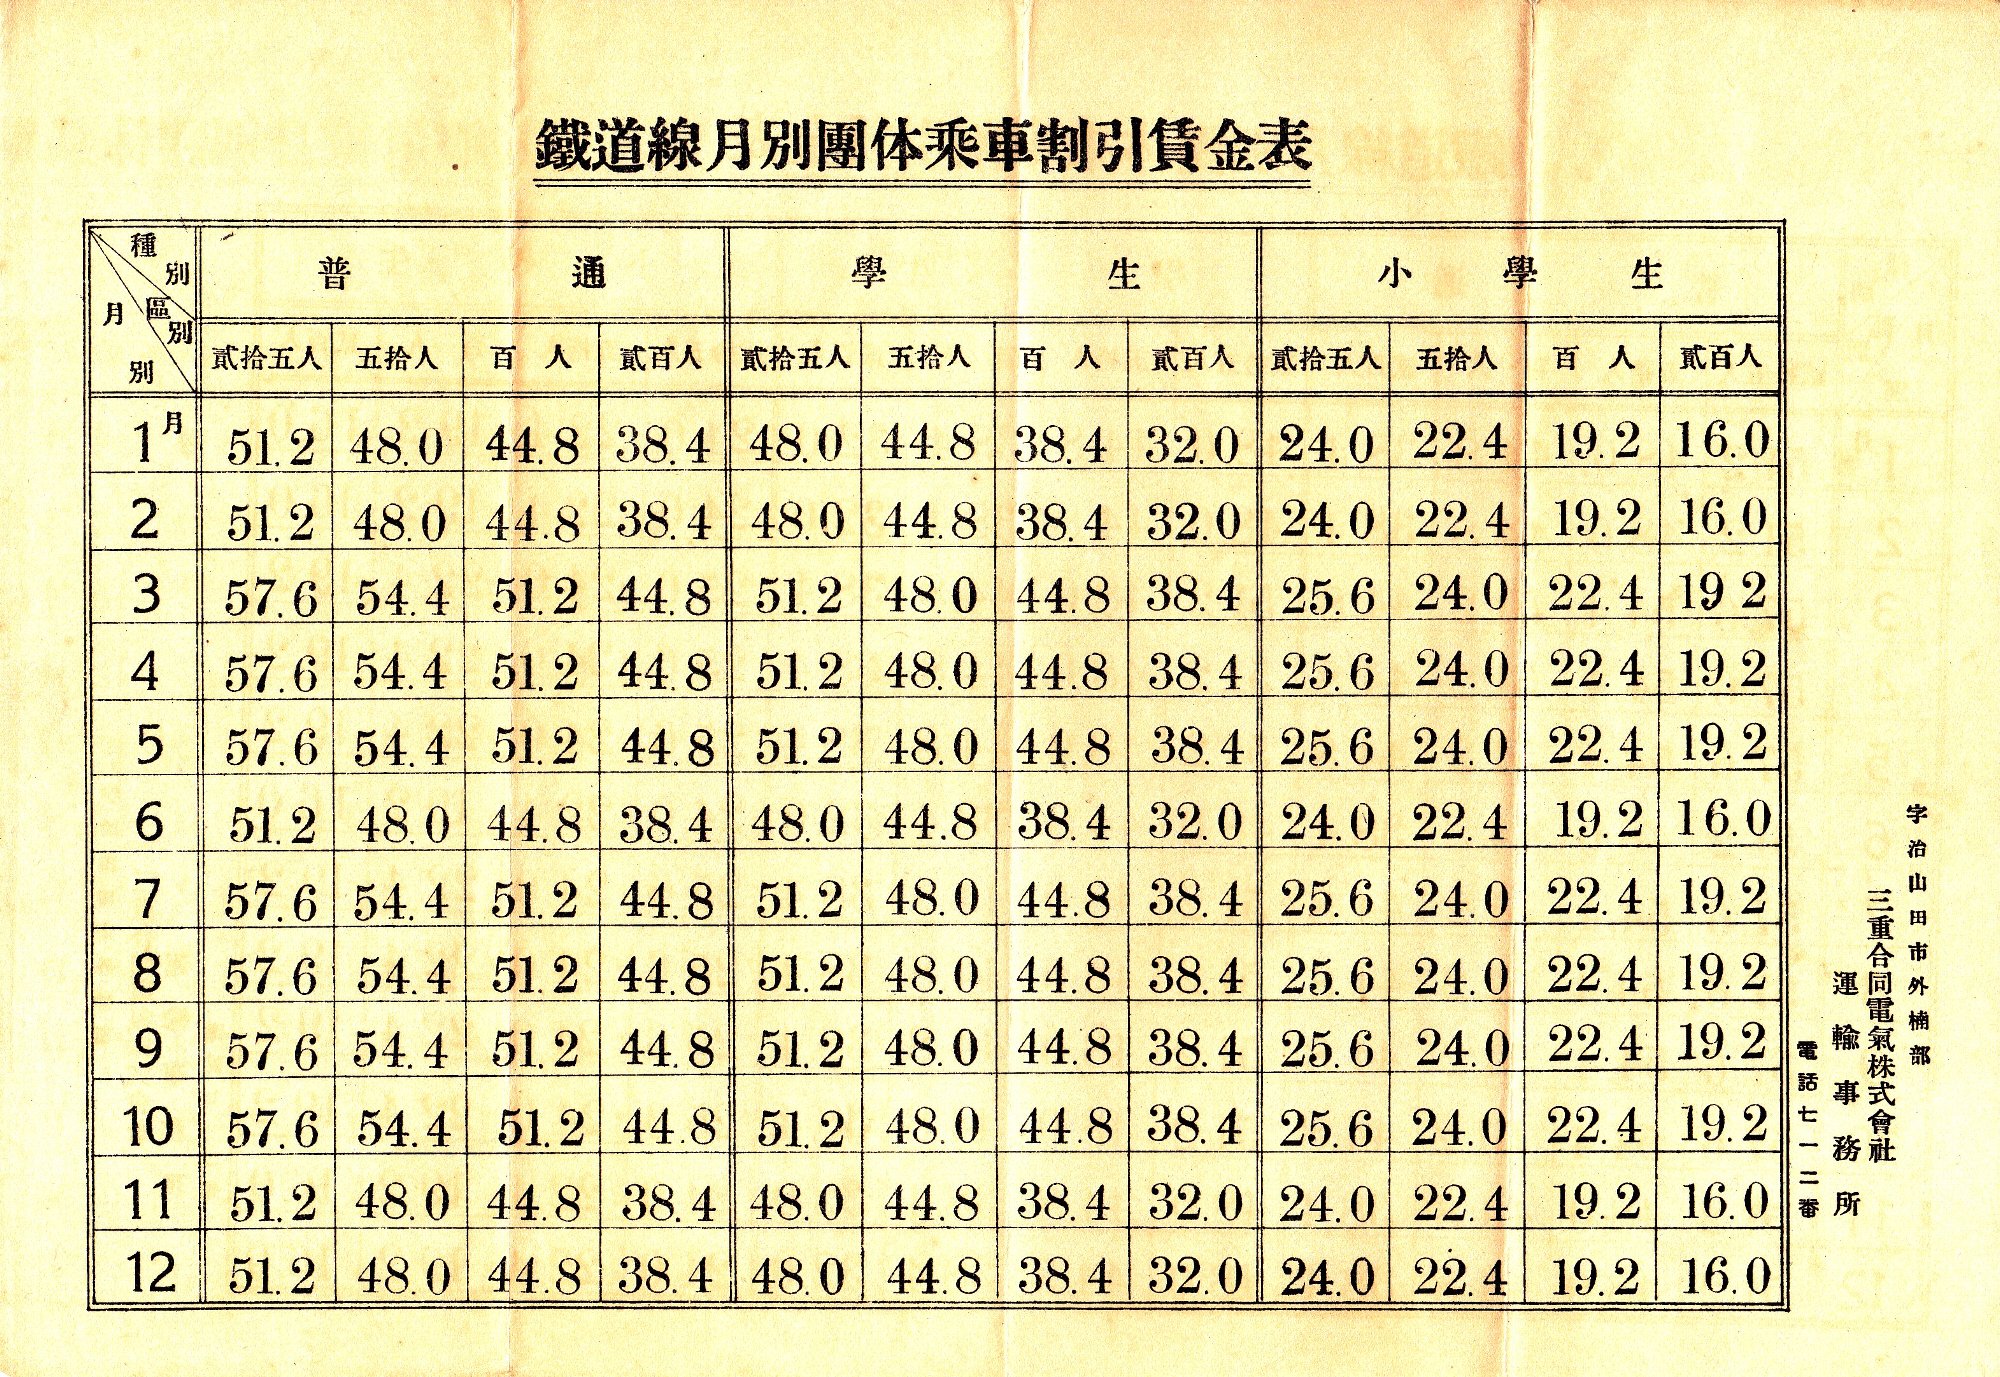 鐵道線月別團体乘車割引賃金表
種別 區別 月別
普通 學生 小學生
貳拾五人 五拾人 百人 貳百人 貳拾五人 五拾人 百人 貳百人 貳拾五人 五拾人 百人 貳百人
1月 51.2 48.0 44.8 38.4 48.0 44.8 38.4 32.0 24.0 22.4 19.2 16.0
2 51.2 48.0 44.8 38.4 48.0 44.8 38.4 32.0 24.0 22.4 19.2 16.0
3 57.6 54.4 51.2 44.8 51.2 48.0 44.8 38.4 25.6 24.0 22.4 19 2
4 57.6 54.4 51.2 44.8 51.2 48.0 44.8 38.4 25.6 24.0 22.4 19.2
5 57.6 54.4 51.2 44.8 51.2 48.0 44.8 38.4 25.6 24.0 22.4 19.2
6 51.2 48.0 44.8 38.4 48.0 44.8 38.4 32.0 24.0 22.4 19.2 16.0
7 57.6 54.4 51.2 44.8 51.2 48.0 44.8 38.4 25.6 24.0 22.4 19.2
8 57.6 54.4 51.2 44.8 51.2 48.0 44.8 38.4 25.6 24.0 22.4 19.2
9 57.6 54.4 51.2 44.8 51.2 48.0 44.8 38.4 25.6 24.0 22.4 19.2
10 57.6 54.4 51.2 44.8 51.2 48.0 44.8 38.4 25.6 24.0 22.4 19.2
11 51.2 48.0 44.8 38.4 48.0 44.8 38.4 32.0 24.0 22.4 19.2 16.0
12 51.2 48.0 44.8 38.4 48.0 44.8 38.4 32.0 24.0 22.4 19.2 16.0
宇治山田市外楠部
三重合同電氣株式會社
運輸事務所
電話七一二番